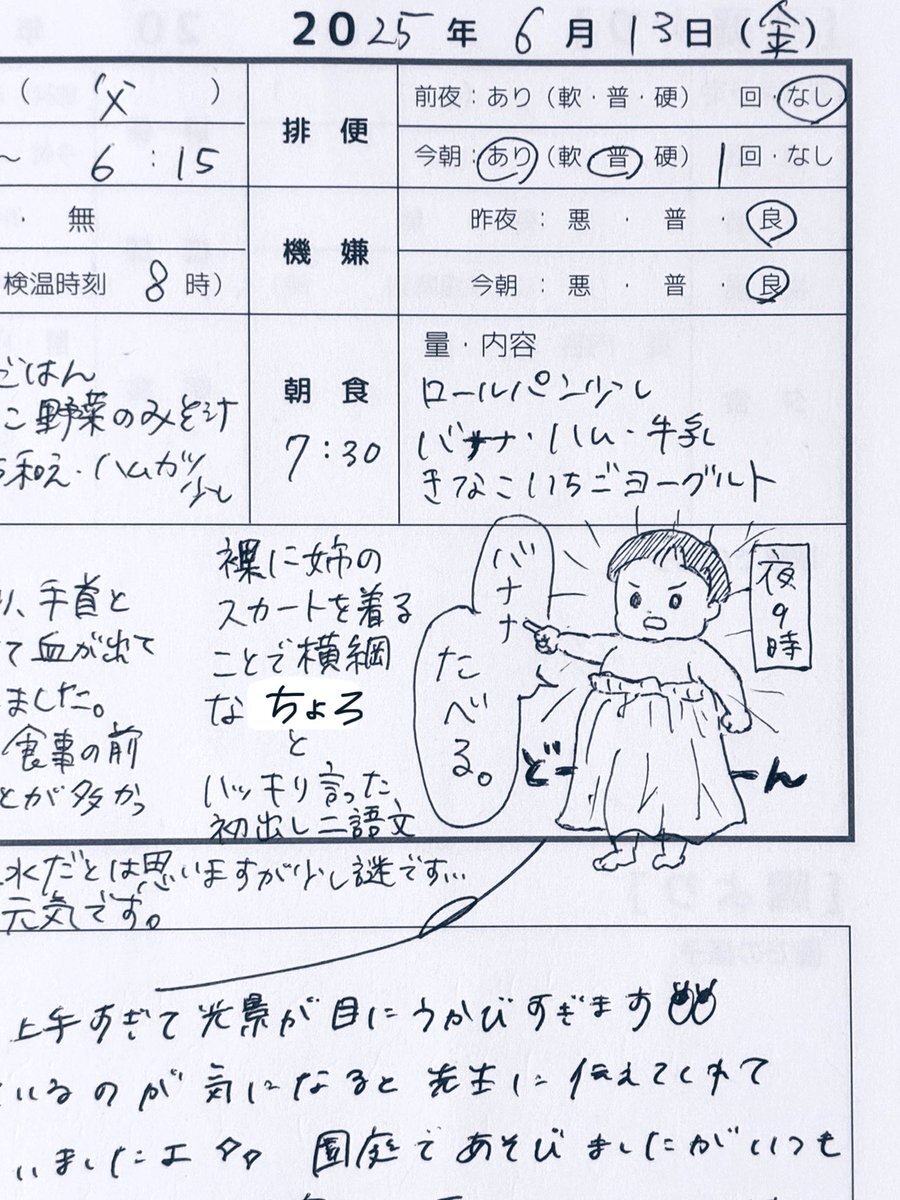 2025年 6月 13日(金)
( 〃 )
~ 6:15
排便
前夜:あり(軟・普・硬) 回・なし
今朝:あり(軟・普・硬) 1回・なし
無
検温時刻 8時)
機嫌
昨夜:悪・普・良
今朝:悪・普・良
ごはん
こ野菜のみそ汁
和え・ハムカツ
少し
朝食
7:30
量・内容
ロールパン少し
バナナ・ハム・牛乳
きなこいちごヨーグルト
、手首と
て血が出て
ました。
食事の前
とが多かっ
水だとは思いますが少し謎です…
元気です。
裸に姉の
スカートを着る
ことで横綱
な ちょろ
と
ハッキリ言った
初出し二語文
バナナ
たべる。
夜9時
どーん
上手すぎて光景が目にうかびすぎます
いるのが気になると先生に伝えてくれて
いました 園庭であそびましたがいつも